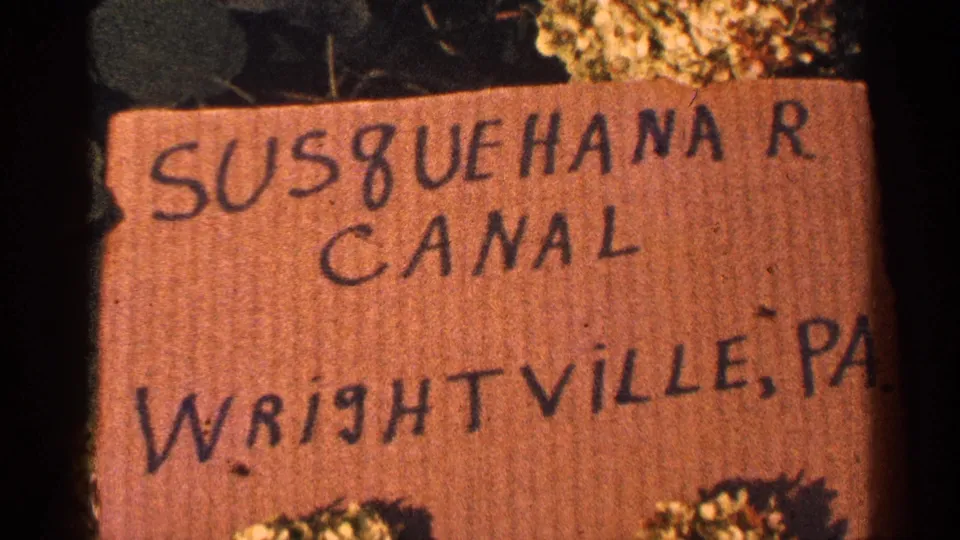 SUSQUEHANA R
CANAL
WRiGHTViLLE, PA.